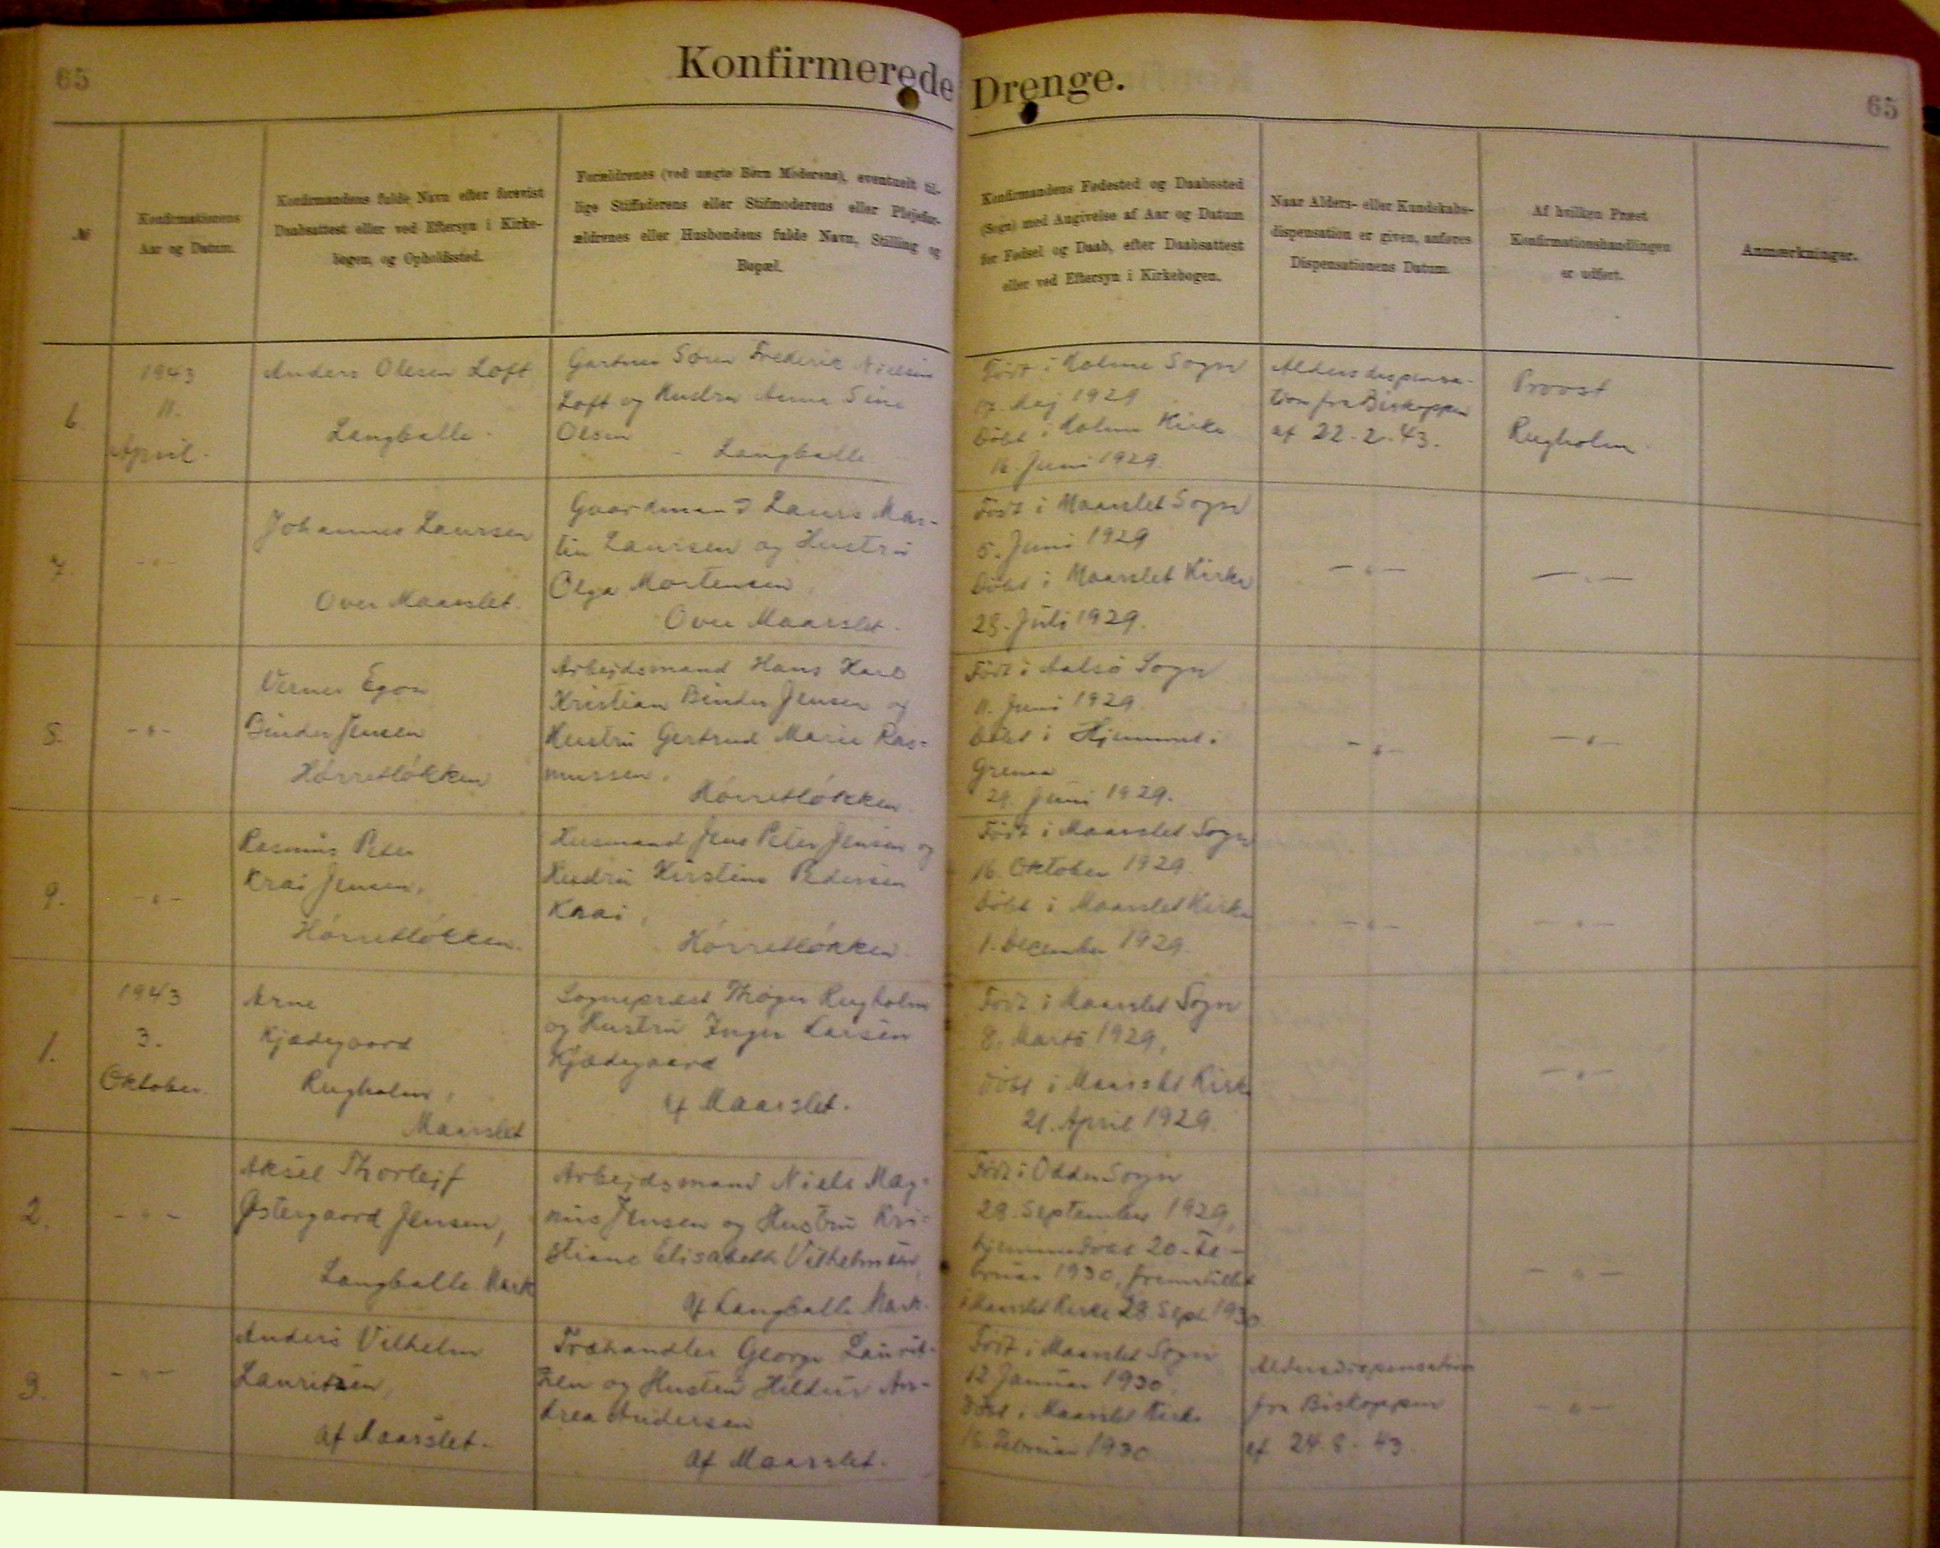 65
Konfirmerede Drenge.
65
№
Konfirmationens
Aar og Datum.
Konfirmandens fulde Navn efter forevist
Daabsattest eller ved Eftersyn i Kirke-
bogen, og Opholdssted.
Forældrenes (ved uægte Børn Moderens), eventuelt til-
lige Stiffaderens eller Stifmoderens eller Plejefor-
ældrenes eller Husbondens fulde Navn, Stilling og
Bopæl.
Konfirmandens Fødested og Daabssted
(Sogn) med Angivelse af Aar og Datum
for Fødsel og Daab, efter Daabsattest
eller ved Eftersyn i Kirkebogen.
Naar Alders- eller Kundskabs-
dispensation er given, anføres
Dispensationens Datum.
Af hvilken Præst
Konfirmationshandlingen
er udført.
Anmærkninger.
6.
1943
11.
April.
Anders Olesen Loft
Langballe.
Gartner Søren Frederik Nielsen
Loft og Hustru Anna Sine
Olsen
Langballe
Født i Holme Sogn
17. Maj 1929
Døbt i Holme Kirke
16. Juni 1929.
Aldersdispensa-
tion fra Biskoppen
af 22-2-43.
Provst
Rugholm.
7.
-"-
Johannes Laursen
Over Maarslet.
Gaardmand Laurs Mar-
tin Laursen og Hustru
Olga Mortensen,
Over Maarslet.
Født i Maarslet Sogn
5. Juni 1929
Døbt i Maarslet Kirke
28. Juli 1929.
-"-
-"-
8.
-"-
Verner Egon
Binder Jensen
Hørretløkken
Arbejdsmand Hans Karl
Kristian Binder Jensen og
Hustru Gertrud Marie Ras-
mussen.
Hørretløkken.
Født i Aalsø Sogn
11. Juni 1929.
Døbt i Hjemmet i
Grenaa
29. Juni 1929.
-"-
-"-
9.
-"-
Rasmus Peter
Krai Jensen,
Hørretløkken.
Husmand Jens Peter Jensen og
Hustru Kirstine Pedersen
Krai,
Hørretløkken.
Født i Maarslet Sogn
16. Oktober 1929.
Døbt i Maarslet Kirke
1. December 1929.
-"-
-"-
1.
1943
3.
Oktober.
Arne
Kjædegaard
Rugholm,
Maarslet
Sognepræst Thøger Rugholm
og Hustru Inger Larsen
Kjædegaard
af Maarslet.
Født i Maarslet Sogn
8. Marts 1929,
døbt i Maarslet Kirke
21. April 1929.
-"-
2.
-"-
Aksel Thorleif
Østergaard Jensen,
Langballe Mark
Arbejdsmand Niels Mag-
nus Jensen og Hustru Kri-
stiane Elisabeth Vilhelmsen,
af Langballe Mark.
Født i Odder Sogn
28. September 1929,
hjemmedøbt 20. Fe-
bruar 1930, fremstillet
i Maarslet Kirke 28. Sept. 1930
-"-
3.
-"-
Anders Vilhelm
Lauritzen,
af Maarslet.
Træhandler Georg Laurit-
zen og Hustru Hildur An-
drea Andersen
af Maarslet.
Født i Maarslet Sogn
12 Januar 1930.
døbt i Maarslet Kirke
16. Februar 1930
Aldersdispensation
fra Biskoppen
af 24.8.43.
-"-